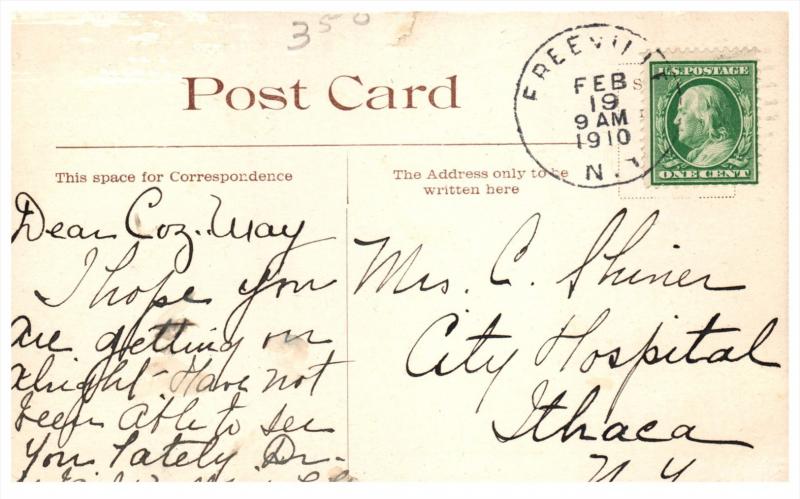 350
Post Card
FREEVILL
FEB
19
9 AM
1910
N.Y
U.S. POSTAGE
ONE CENT
This space for Correspondence
The Address only to be
written here
Dear Coz. May
I hope you
are getting on
alright - Have not
been able to see
you lately Dr-
Mrs. C. Shiner
City Hospital
Ithaca
N.Y.